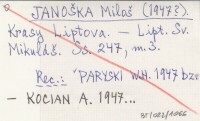 JANOŠKA Miloš (1947?).
Krasy Liptova. — Lipt. Sv.
Mikuláš. Ss. 247, m. 3.
Rec.: PARYSKI W.H. 1947 bzv
— KOCIAN A. 1947...
BT/022/1066